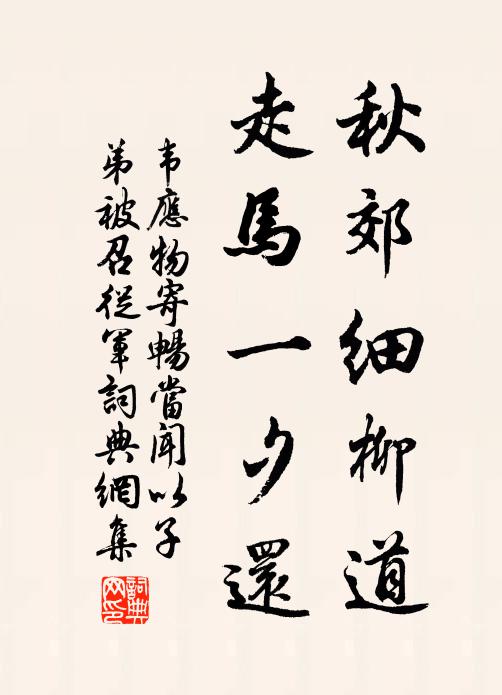 秋郊細柳道
走馬一夕還
韦應物寄暢當聞以子
弟被召從軍詞典網集
詞典
網印